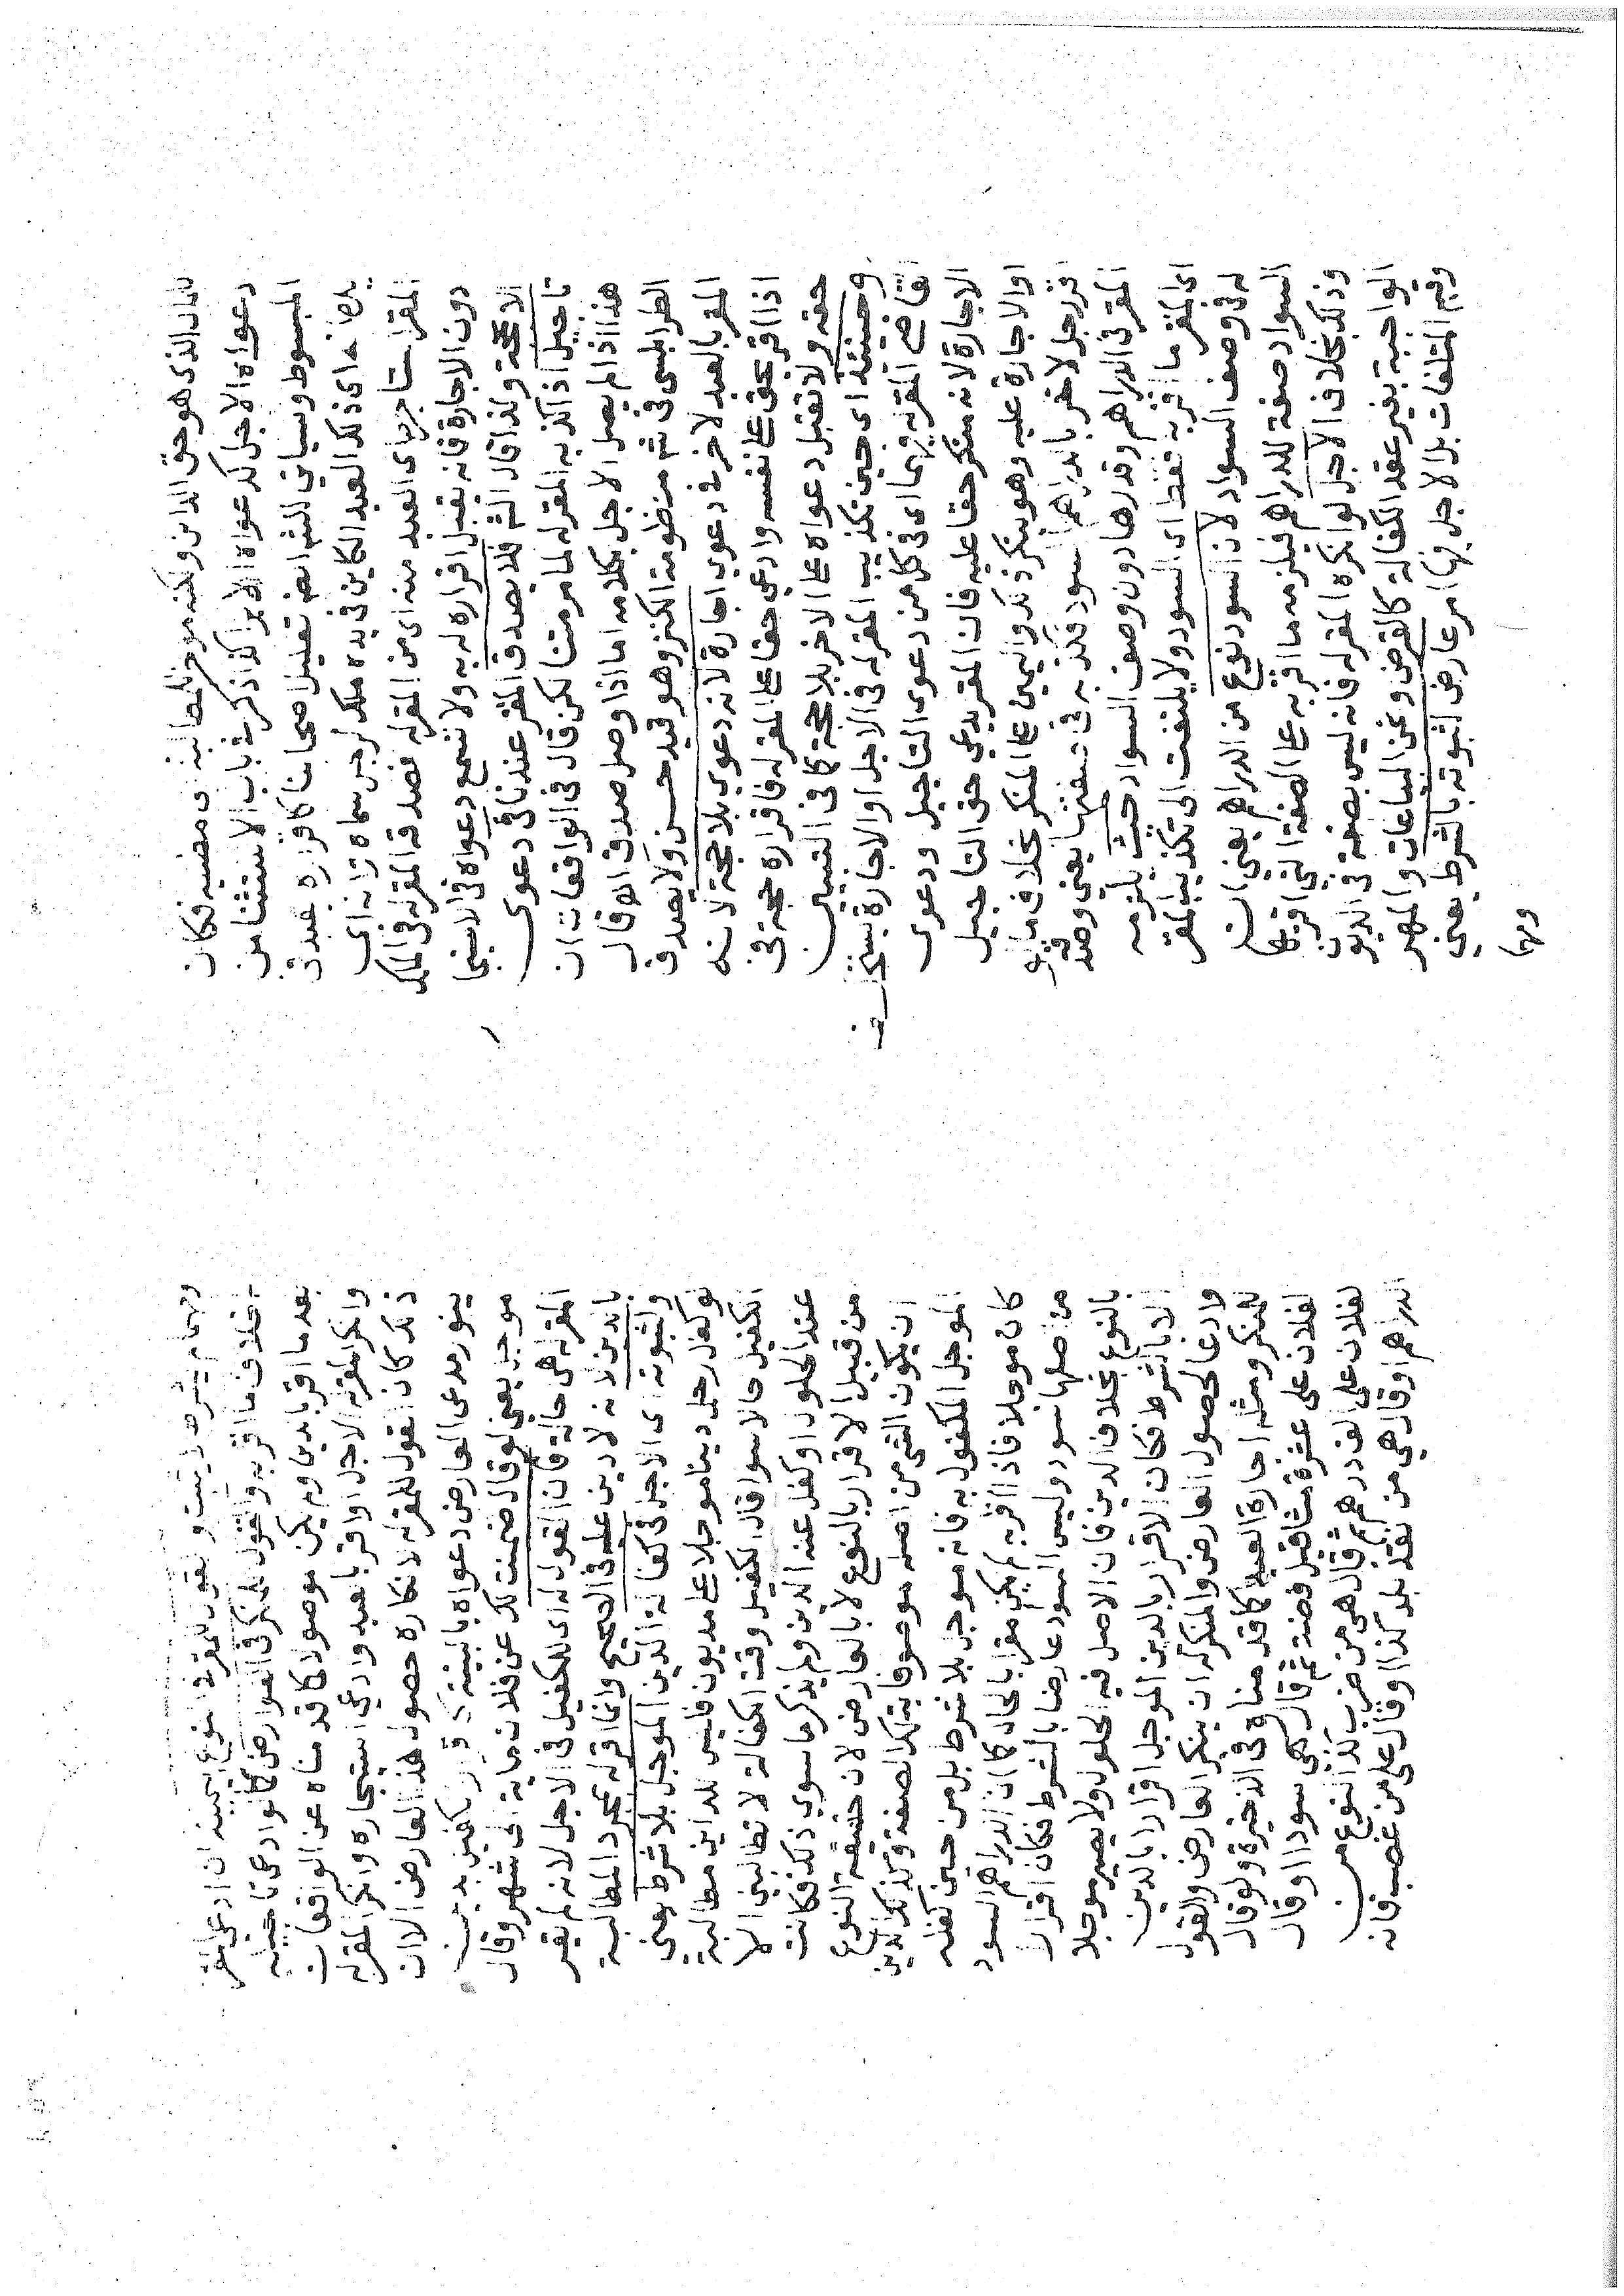 للمال الذي هو حق الداين ولكنه مؤخر للمطالبة الى مضيه فكان
دعواه الاجل كدعواه الابرا كذا ذكره في باب الاستثنا من
المبسوط وسياتي للش ايضا تعليل اصحابنا كاقراره بعبد في
يده اي ذلك العبد الكاين في يده ملك لرجل سماه ثم انه اي
المقر استاجره اي العبد منه اي من المقر له فصدقه المقر له في الملك
دون الاجارة فانه يقبل اقراره له به ولا تسمع دعواه في الاستيجا
الا بحجة وكذا قال الش فلا يصدق المقر عندنا في دعوى
تاجيل اذا كذبه المقر له لما مر متنا لكن قال في الواقعات ان
هذا اذا لم يصل الاجل بكلامه اما اذا وصل صدق او قال
الطرابلسي في منظومة الكنز وهو قيد حسن ولا يصدق
المقر بالعبد لاخر في دعوي اجارة لانه دعوي بلا حجة لانه
اذا اقر بحق على نفسه وادعي حقا على المقر له فاقراره حجة في
حقه ولا تقبل دعواه على الاخر بلا حجة كما في التبيين
وحينئذ اي حين تكذيب المقر له في الاجل او الاجارة يستحلف
القاضي المقر له فيهما اي في كل من دعوى التاجيل ودعوى
الاجارة لانه منكر حقا عليه فان المقر يدعي حق التاجيل
او الاجارة عليه وهو ينكر ذلك واليمين على المنكر بخلاف ما لو
اقر رجل لاخر بالدراهم السود فكذبه في صفتها يعني وصدقه
المقر في الدراهم وقدرها دون وصف السواد حيث يلزمه
اي المقر ما اقر به فقط اي السود ولا يلتفت الى تكذيب المقر
له في وصف السواد لان السود نوع من الدراهم يعني ان
السواد صفة للدراهم فيلزمه ما اقر به على الصفة التي اقر بها
وذلك بخلاف الاجل لو انكره المقر له فانه ليس بصفة في الديون
الواجبة بغير عقد الكفالة كالقرض وثمن البياعات والمهر
وقيم المتلفات بل الاجل فيها امر عارض لثبوته بالشرط يعني
ومهما
ومهما لم يشرط لا يثبت والقول للمقر في النوع ان ادعى المقر
خلاف ما اقر به والقول للمنكر في العوارض كما لو ادعى تاجيله
بعد ما اقر بالدين ولم يكن موصولا كما قدمناه عن الواقعات
وانكر المقر له الاجل او اقر بالعبد وادعي استيجاره وانكر المقر له
ذلك كان القول للمقر له لانكاره حصول هذا العارض الا ان
ينور مدعى العارض دعواه بالبينة كاقرار الكفيل بدين
موجل يعني لو قال ضمنت لك عن فلان مماية الى شهر وقال
المقر له هي حالة فان القول له اي للكفيل في الاجل لانه لم يقر
بالدين لانه لا دين عليه في الصحيح وانما اقر له بمجرد المطالبة
ولثبوته اي الاجل في كفالة الدين الموجل بلا شرط يعني
لو كفل رجل دينا موجلا على مديون فليس للداين مطالبة
الكفيل حالا سوا قال الكفيل وقت الكفالة لا تطالبني الا
عند الحلول او كفل عنه الدين ولم يذكر ما سوي ذلك فكانت
من قبيل الاقرار بالنوع لا بالعارض لان حقيقة النوع
ان يكون الشي من اصله موصوفا بتلك الصفة وكذلك الدين
الموجل المكفول به فانه موجل بلا شرط بل من حين كفله
كان موجلا فاذا اقر به لم يكن مقرا بالحال كما ان الدراهم السود
من اصلها سود وليس السود عارضا بالشرط فكان اقرارا
بالنوع بخلاف الدين فان الاصل فيه الحلول ولا يصير موجلا
الا بالشرط فكان الاقرار بالدين الموجل اقرارا بالدين
وادعا لحصول العارض والمنكر له ان ينكر العارض والقول
للمنكر ومثله اجارة العبد كما قدمناه في الذخيرة ولو قال
لفلان علي عشرة مثاقيل فضة ثم قال هي سود او قال
لفلان علي الف درهم ثم قال هي من ضرب كذا النوع من
الدراهم او قال هي من نقد بلد كذا او قال علي من غصب فانه